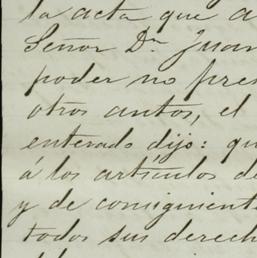 la acta que a
Señor Dn Juan
poder no pres
otros autos, el
enterado dijo: qu
á los artículos de
y de consiguient
todos sus derech